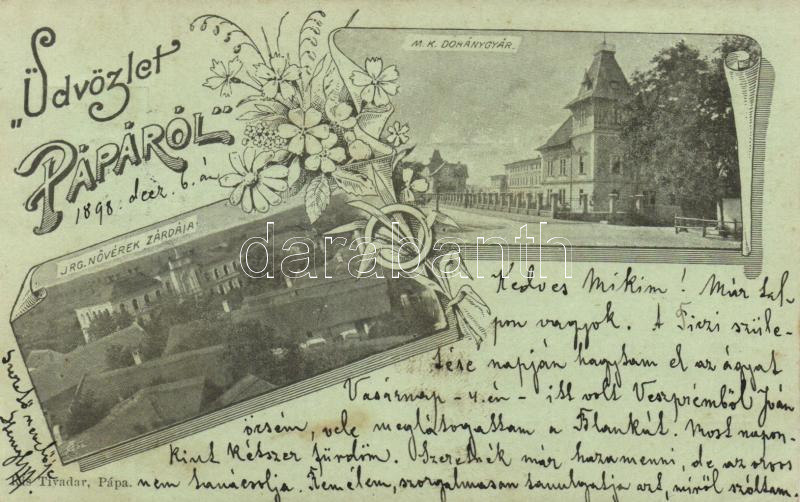 "Üdvözlet
PÁPÁRÓL"
1898. decz. 6. án
M. K. DOHÁNYGYÁR.
IRG. NŐVÉREK ZÁRDÁJA
darabanth.com
Kedves Mikim! Már tal-
pon vagyok. A Ticzi szüle-
tése napján hagytam el az ágyat
Vasárnap - 4.én - itt volt Veszprémből Iván
öcsém, vele meglátogattam a Blankát. Most napon-
kint kétszer fürdöm. Szeretnék már hazamenni, de, az orvos
nem tanácsolja. Remélem, szorgalmasan tanulgatja azt, miről szóltam.
Szerető
Kis Tivadar, Pápa.